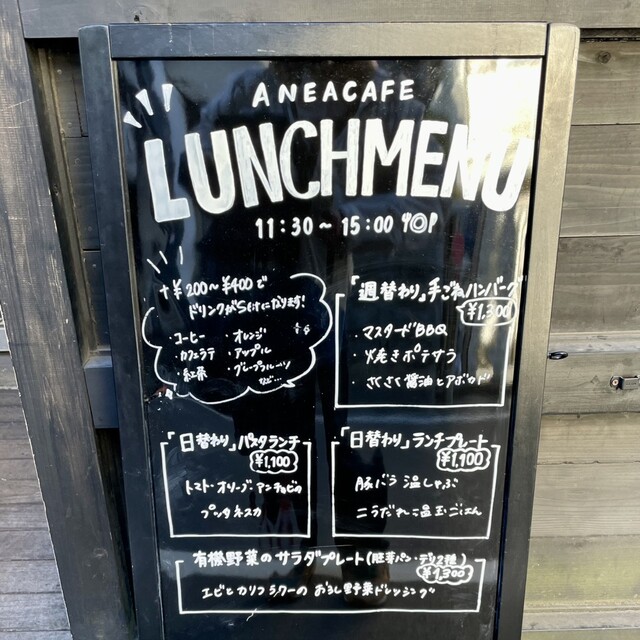 ANEACAFE
LUNCHMENU
11:30～15:00
+¥200～¥400で
ドリンクがSetになります!
・コーヒー ・オレンジ
・カフェラテ ・アップル
・紅茶 ・グレープフルーツ
など…
「週替わり」手ごねハンバーグ
¥1,300
・マスタードBBQ
・焼きポテサラ
・さくさく醤油とアボカド
「日替わり」パスタランチ
¥1,100
トマト・オリーブ・アンチョビの
プッタネスカ
「日替わり」ランチプレート
¥1,100
豚バラ温しゃぶ
ニラだれ 温玉ごはん
有機野菜のサラダプレート(胚芽パン・デリ2種)
¥1,300
エビとカリフラワーの おろし野菜ドレッシング